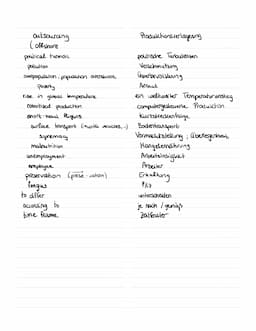 outsourcing Produktionsverlagerung
(offshore
political turmoil politische Turbulenzen
pollution Verschmutzung
overpopulation, population Überbevölkerung
poverty Armut
rise in global temperature ein weltweiter Temperaturanstieg
computerised production computergesteuerte Produktion
short-haul flights Kurzstreckenflüge
surface transport Bodentransport
supremacy Vormachtstellung; Überlegenheit
malnutrition Mangelernährung
unemployment Arbeitslosigkeit
employee Arbeiter
preservation Erhaltung
fungus Pilz
to differ unterscheiden
according to je nach / gemäß
time frame Zeitfenster